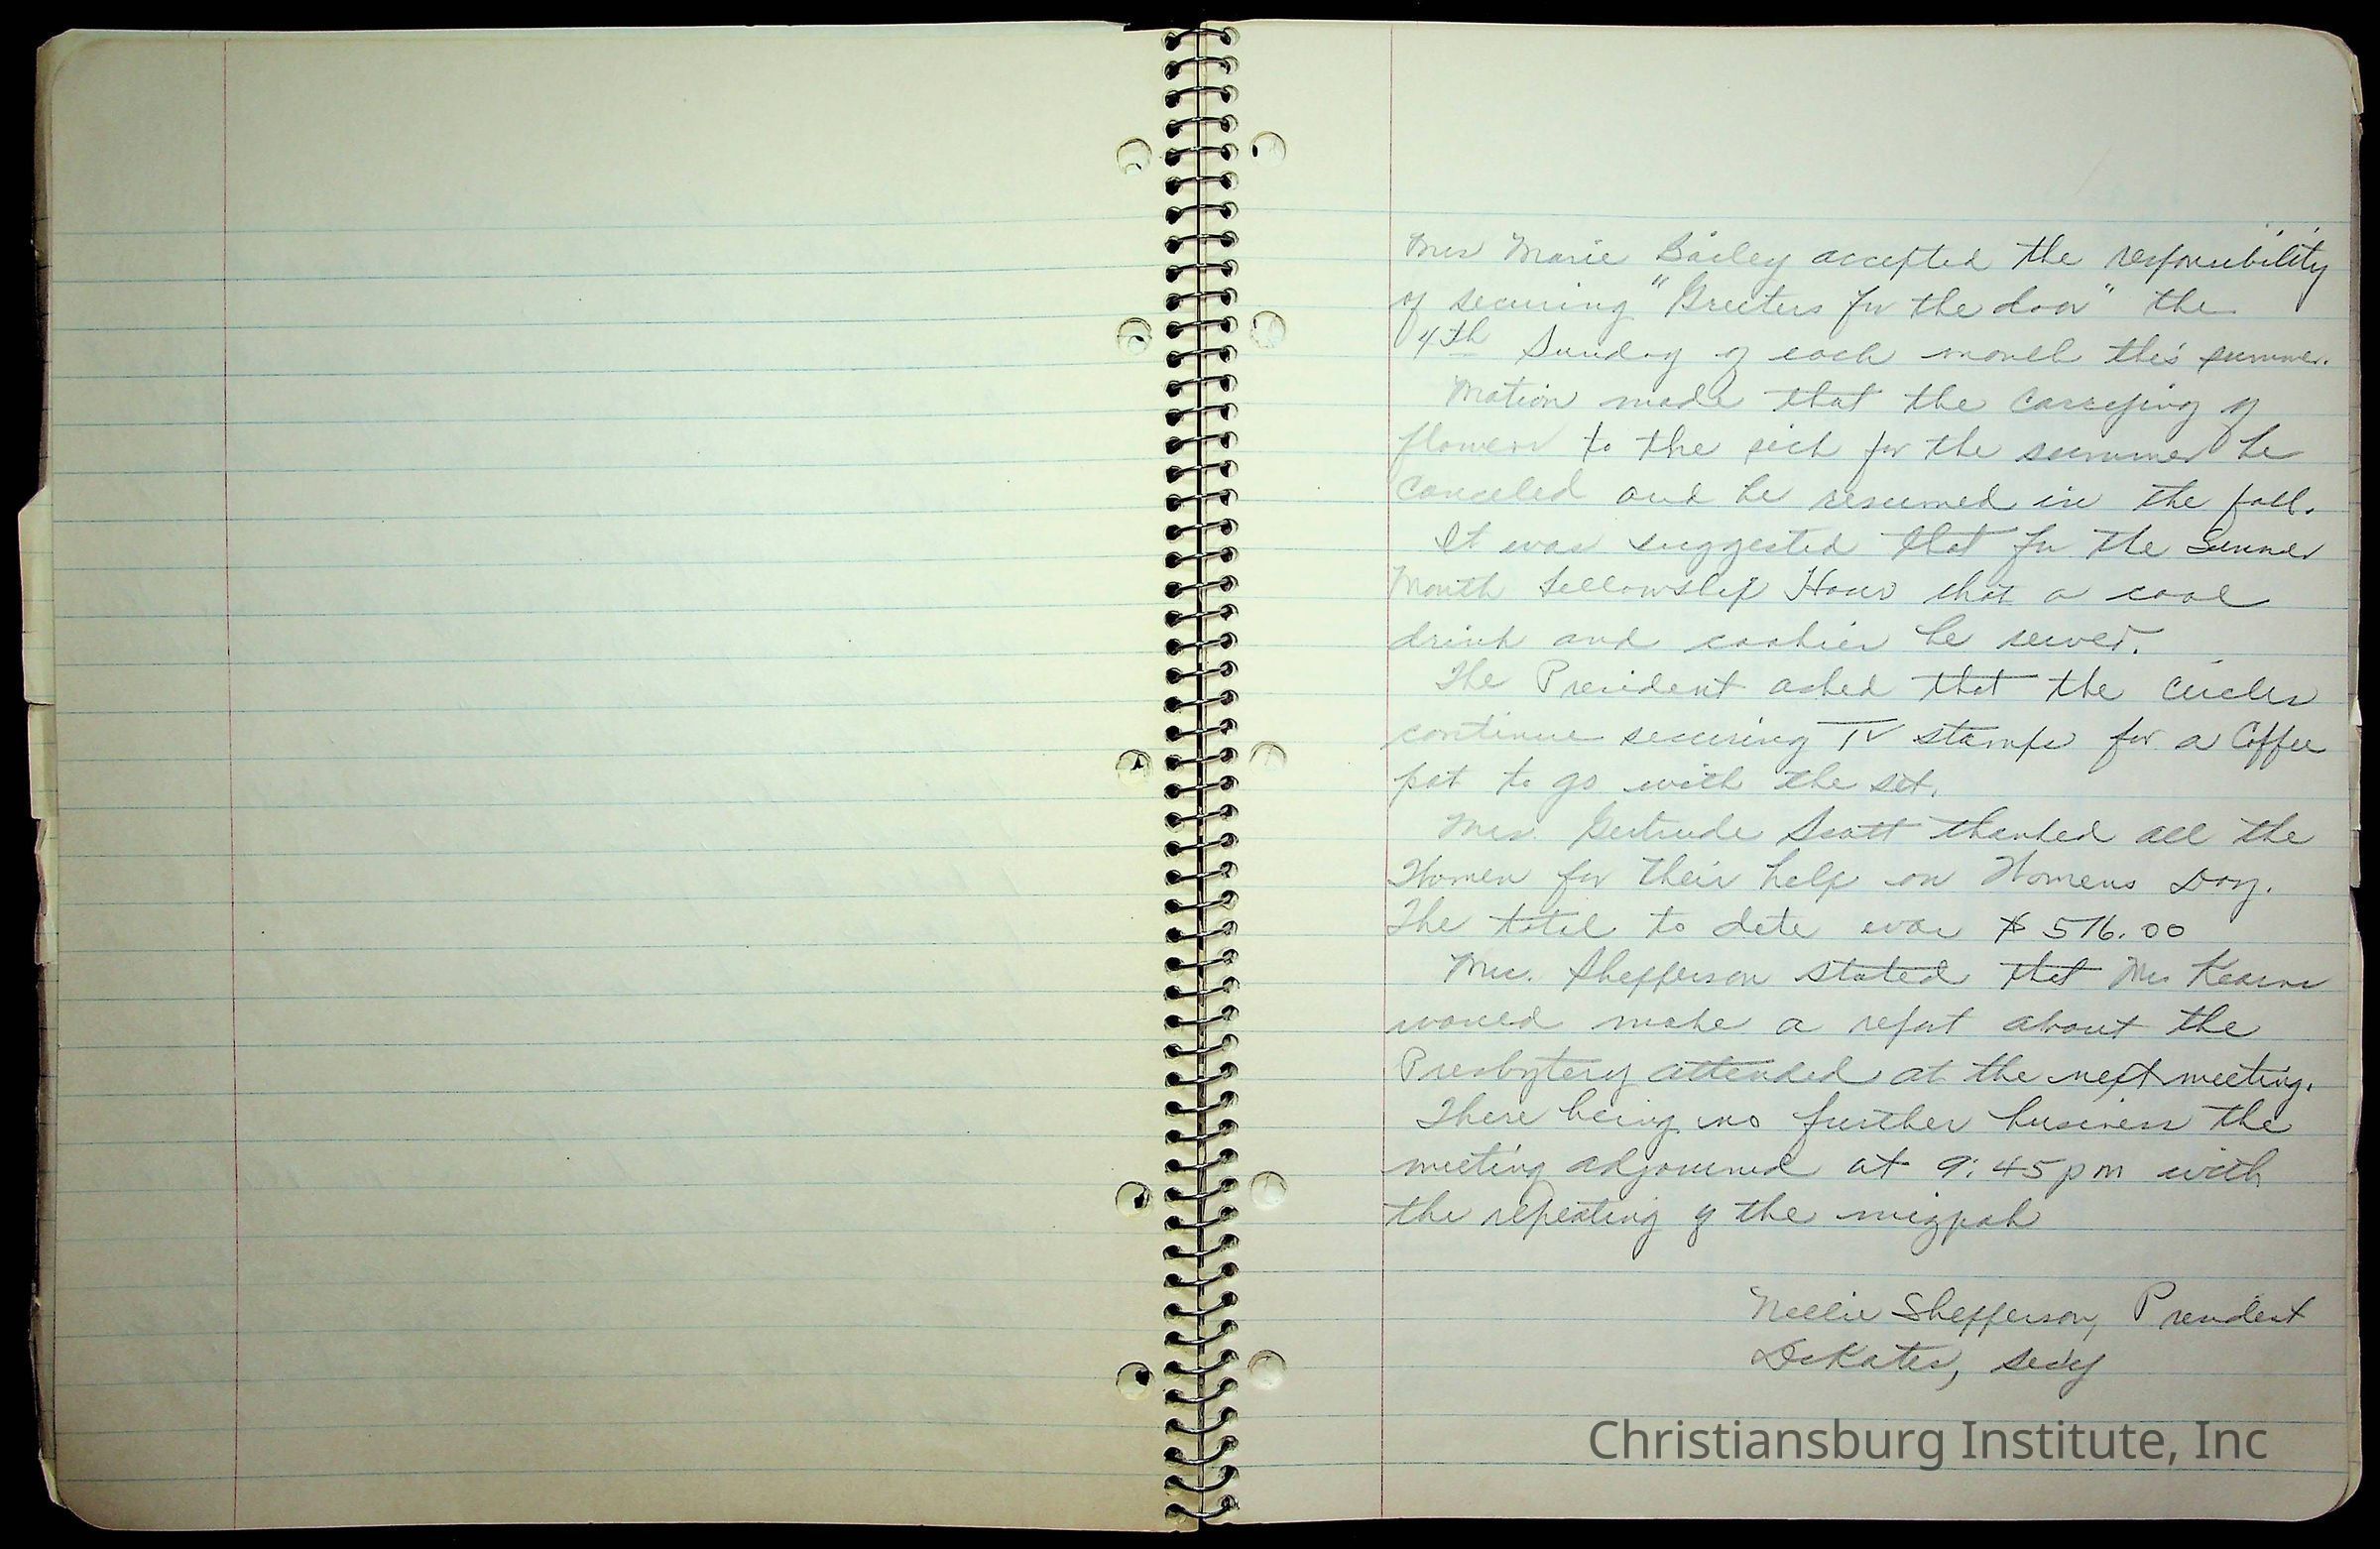 Mrs Marie Bailey accepted the responsibility
of securing "Greeters for the door" the
4th Sunday of each month this summer.
Motion made that the carrying of
flowers to the sick for the summer be
canceled and be resumed in the fall.
It was suggested that for the Summer
Month Fellowship Hour that a cool
drink and cookies be served.
The President asked that the circles
continue securing TV stamps for a Coffee
pot to go with the set.
Mrs. Gertrude Scott thanked all the
Women for their help on Womens Day.
The total to date was $ 576.00
Mrs. Shefferson stated that Mrs Kearns
would make a report about the
Presbytery attended at the next meeting.
There being no further business the
meeting adjourned at 9:45 pm with
the repeating of the mizpah
Nellie Shefferson, President
DeKates, secy
Christiansburg Institute, Inc